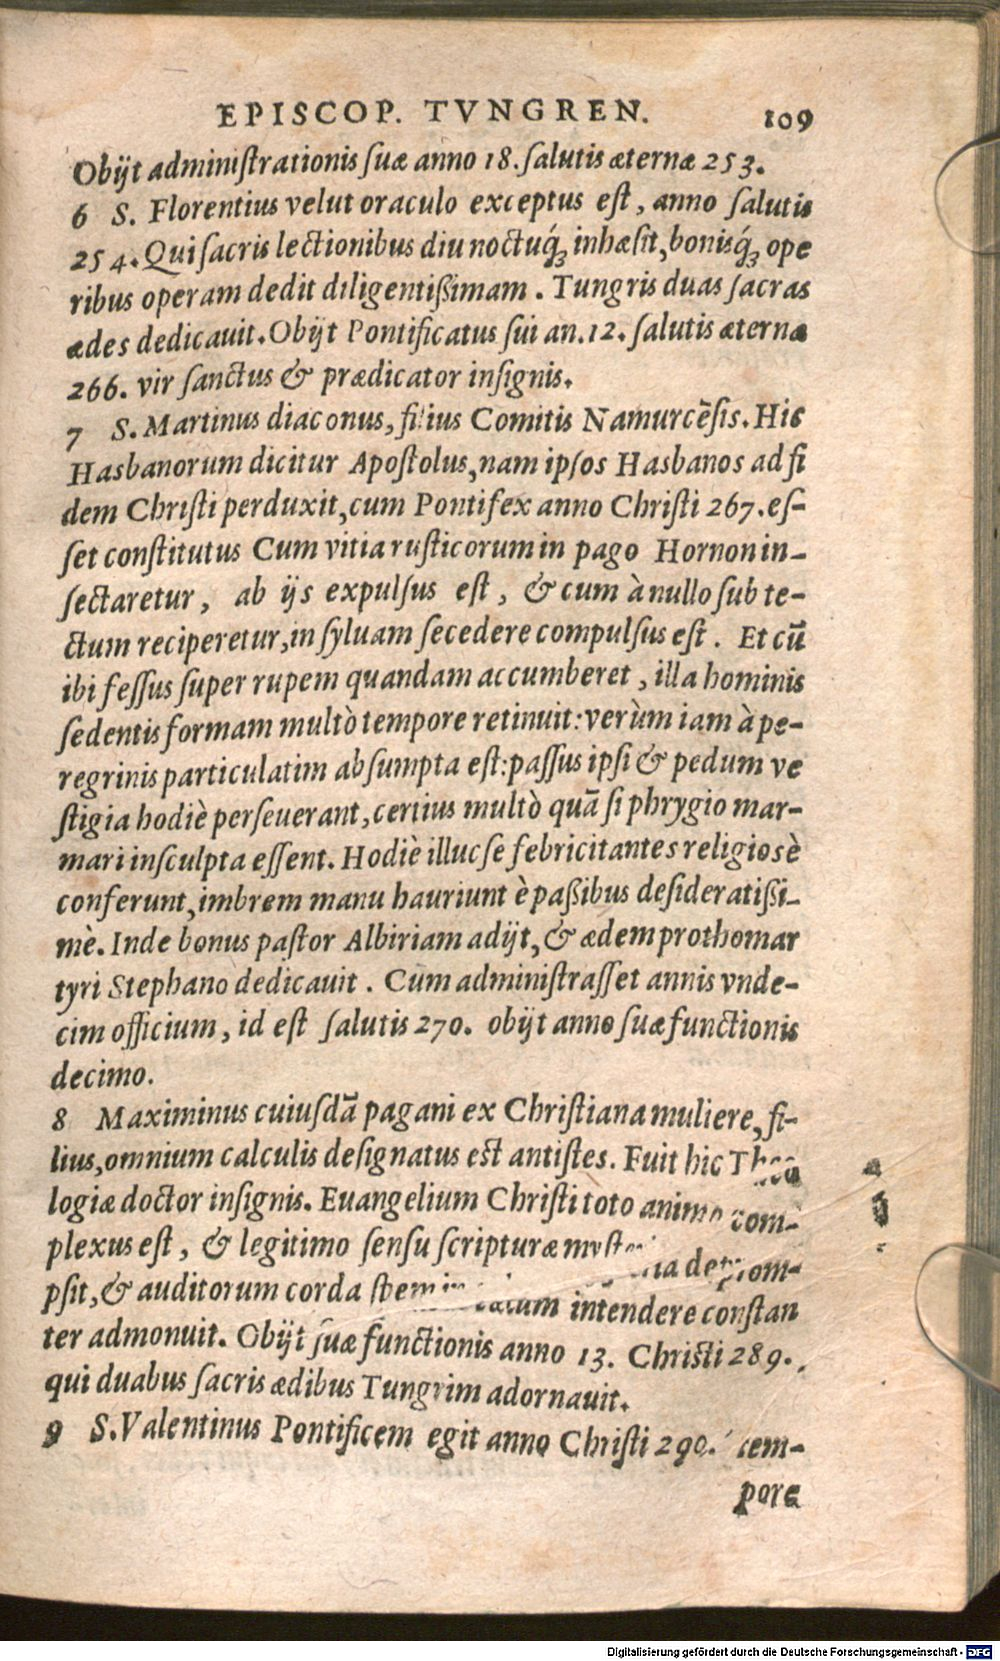 EPISCOP. TVNGREN. 109
Obijt administrationis suæ anno 18. salutis æternæ 253.
6 S. Florentius velut oraculo exceptus est, anno salutis
254. Qui sacris lectionibus diu noctuq́ꝫ inhæsit, bonisq́ꝫ ope
ribus operam dedit diligentißimam. Tungris duas sacras
ædes dedicauit. Obijt Pontificatus sui an. 12. salutis æternæ
266. vir sanctus & prædicator insignis.
7 S. Martinus diaconus, filius Comitis Namurcēsis. Hic
Hasbanorum dicitur Apostolus, nam ipsos Hasbanos ad fi
dem Christi perduxit, cum Pontifex anno Christi 267. es-
set constitutus Cum vitia rusticorum in pago Hornon in-
sectaretur, ab ijs expulsus est, & cum à nullo sub te-
ctum reciperetur, in syluam secedere compulsus est. Et cū
ibi fessus super rupem quandam accumberet, illa hominis
sedentis formam multò tempore retinuit: verùm iam à pe-
regrinis particulatim absumpta est: passus ipsi & pedum ve
stigia hodiè perseuerant, certius multò quā si phrygio mar-
mari insculpta essent. Hodiè illuc se febricitantes religiosè
conferunt, imbrem manu hauriunt è paßibus desideratißi-
mè. Inde bonus pastor Albiriam adijt, & ædem prothomar
tyri Stephano dedicauit. Cum administrasset annis vnde-
cim officium, id est salutis 270. obijt anno suæ functionis
decimo.
8 Maximinus cuiusdā pagani ex Christiana muliere, fi-
lius, omnium calculis designatus est antistes. Fuit hic Theo
logiæ doctor insignis. Euangelium Christi toto animo com-
plexus est, & legitimo sensu scripturæ deprom-
psit, & auditorum corda intendere constan
ter admonuit. Obijt suæ functionis anno 13. Christi 289.
qui duabus sacris ædibus Tungrim adornauit.
9 S. Valentinus Pontificem egit anno Christi 290. tem-
pore
Digitalisierung gefördert durch die Deutsche Forschungsgemeinschaft - DFG